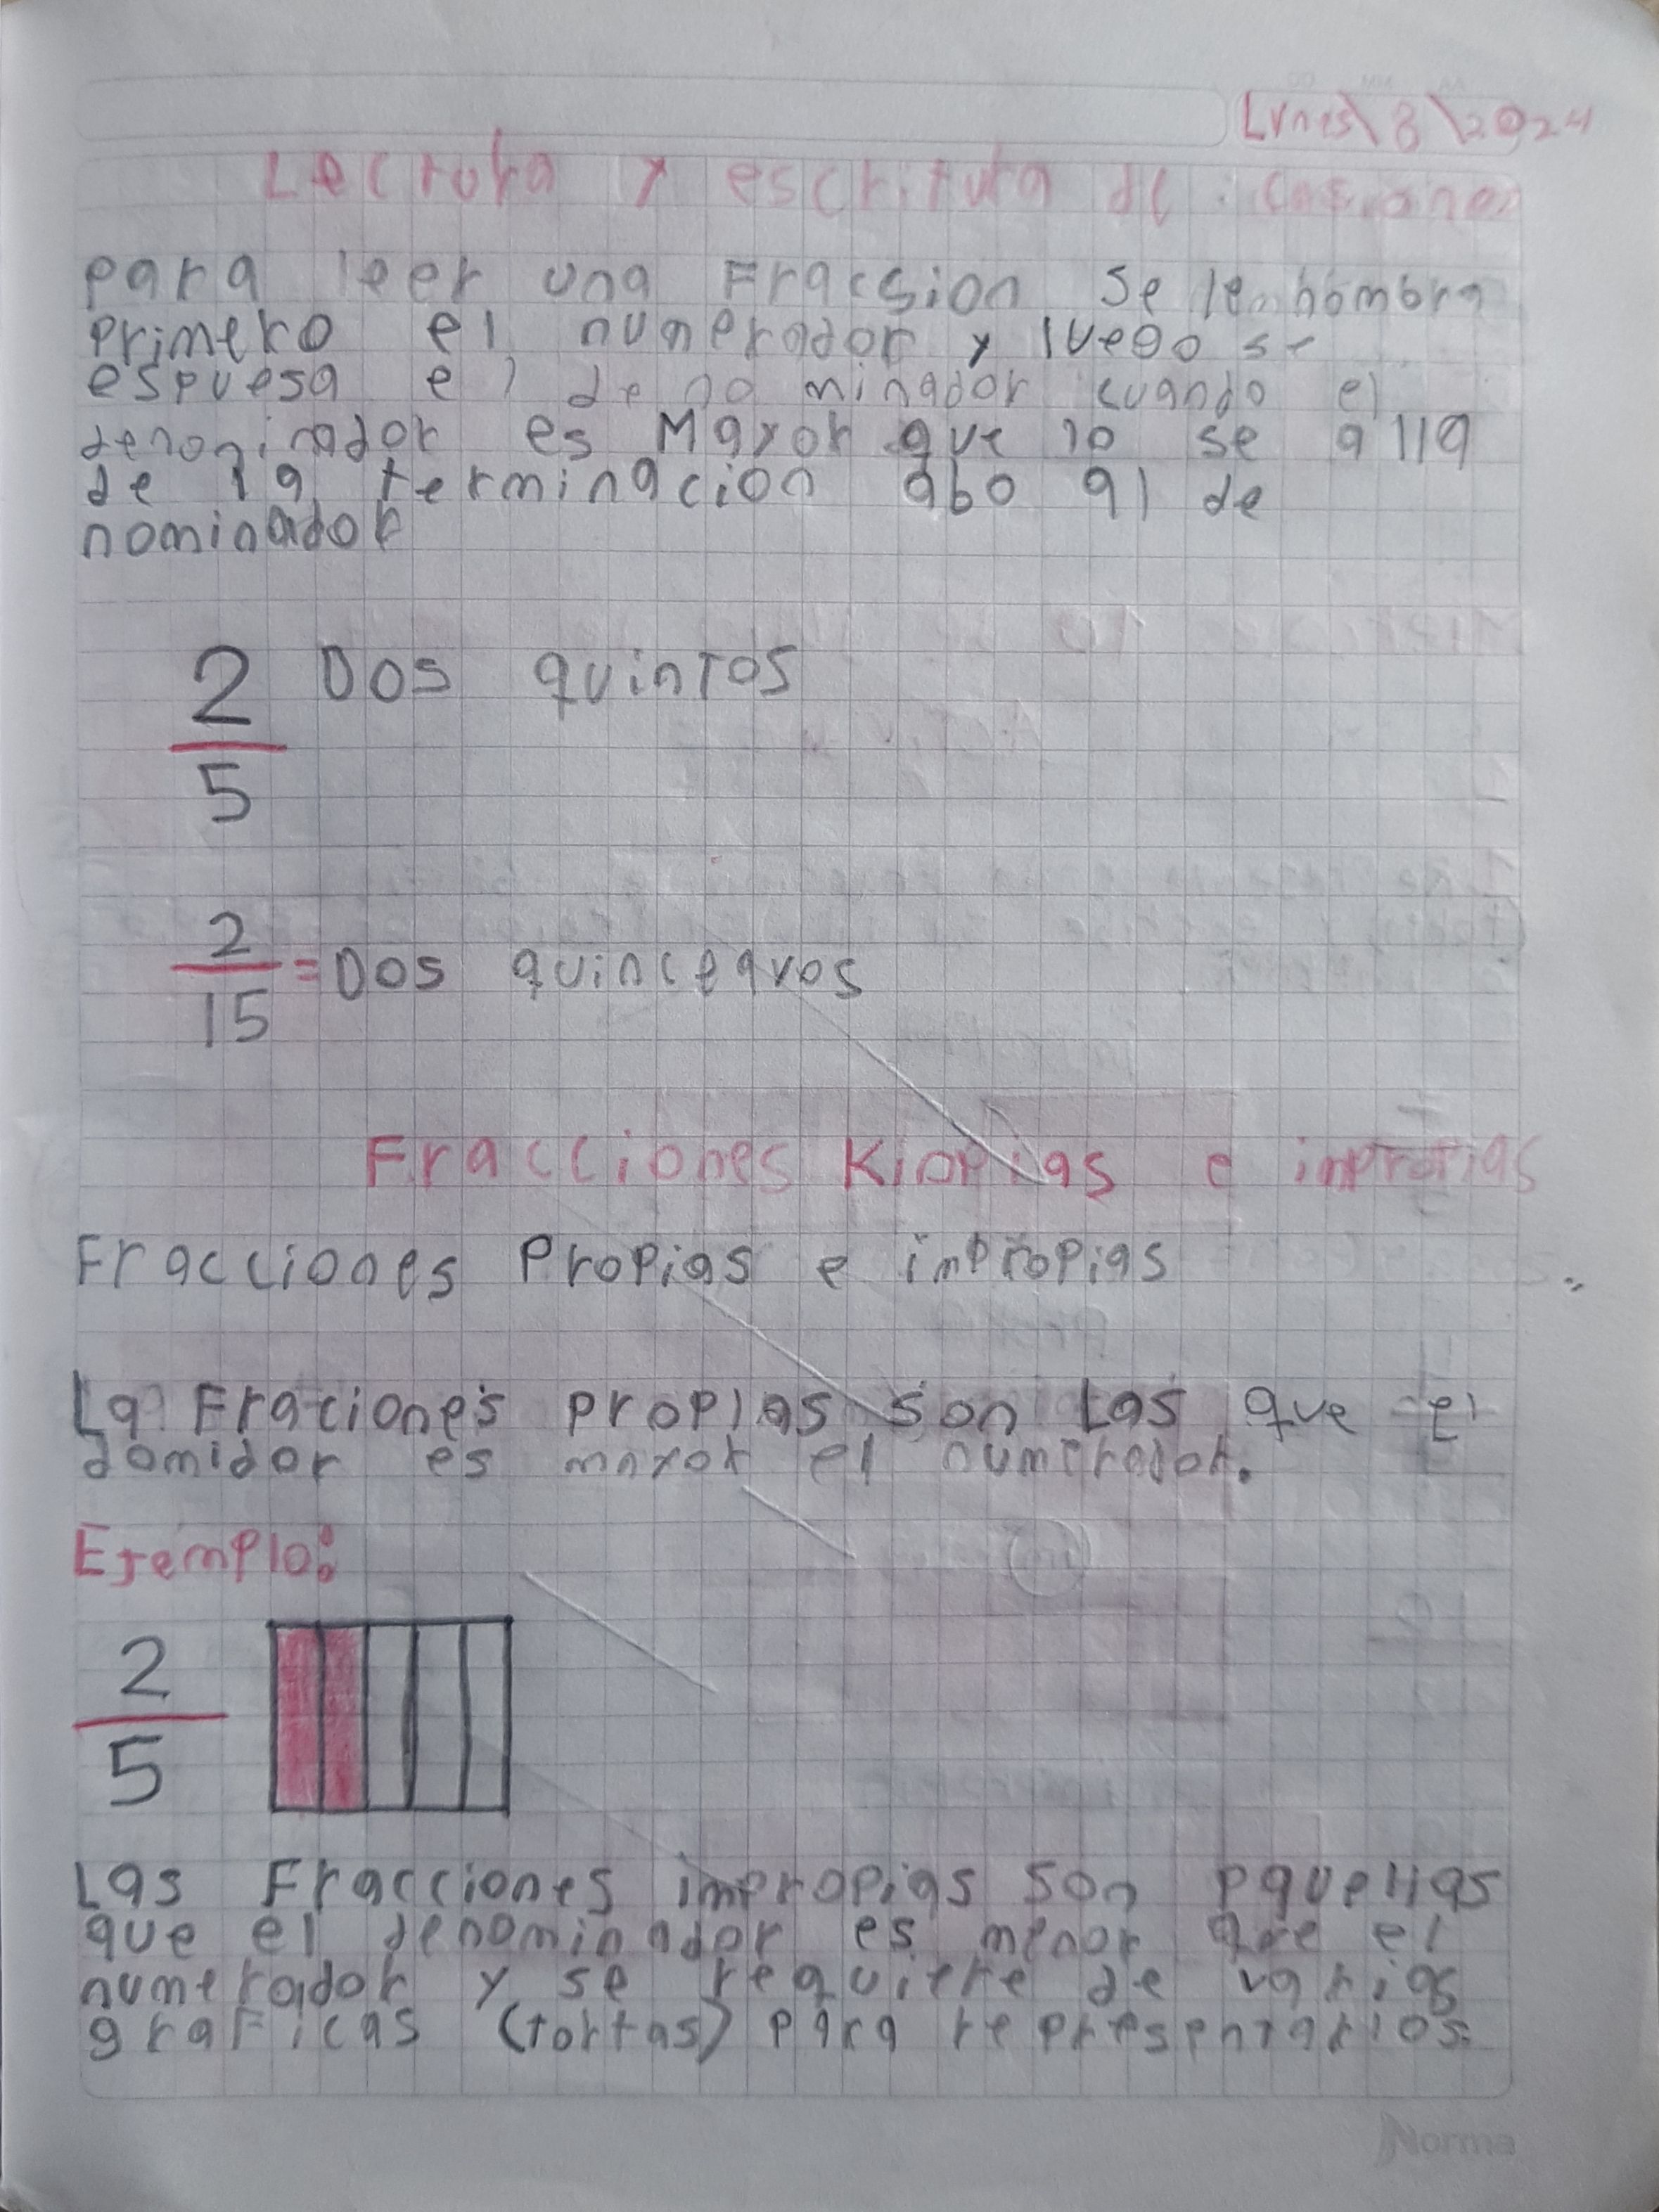 Lunes\8\2024
Lectura y escritura de
para leer una Fracsion se le nombra
primero el numerador y luego se
espuesa el de no minador cuando el
denominador es Mayor que 10 se alla
de la terminacion abo al de
nominador
2 Dos quintos
5
2
= Dos quinceavos
15
Fracciones Kiopias e impropias
Fracciones Propias e impropias
La Fraciones propias son Las que el
domidor es mayor el numerador.
Ejemplo:
2
5
Las Fracciones impropias son aquellas
que el denominador es menor que el
numerador y se requiere de varias
graFicas (tortas) para representarlos.
Norma